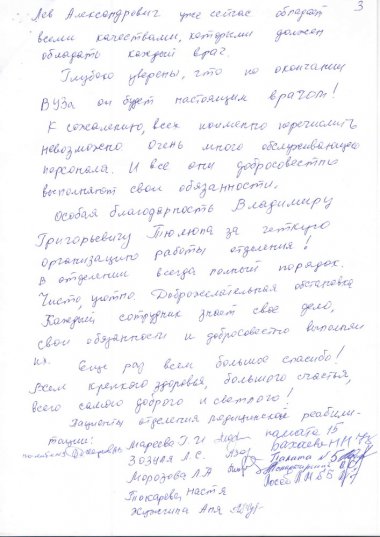 3
Лев Александрович уже сейчас обладает
всеми качествами, которыми должен
обладать каждый врач.
Глубоко уверены, что по окончании
ВУЗа он будет настоящим врачом!
К сожалению, всех поименно перечислить
невозможно Очень много обслуживающего
персонала. И все они добросовестно
выполняют свои обязанности.
Особая благодарность Владимиру
Григорьевичу Тюлюпа за четкую
организацию работы отделения!
В отделении всегда полный порядок.
Чисто, уютно. Доброжелательная обстановка
Каждый сотрудник знает свое дело,
свои обязанности и добросовестно выполняет
их.
Еще раз всем большое спасибо!
Всем крепкого здоровья, большого счастья,
всего самого доброго и светлого!
Пациенты отделения медицинской реабили-
тации:
Мареева Г. И палата 15
Зозуля Л. С.
Морозова Л. А
Токарева Настя
Аня